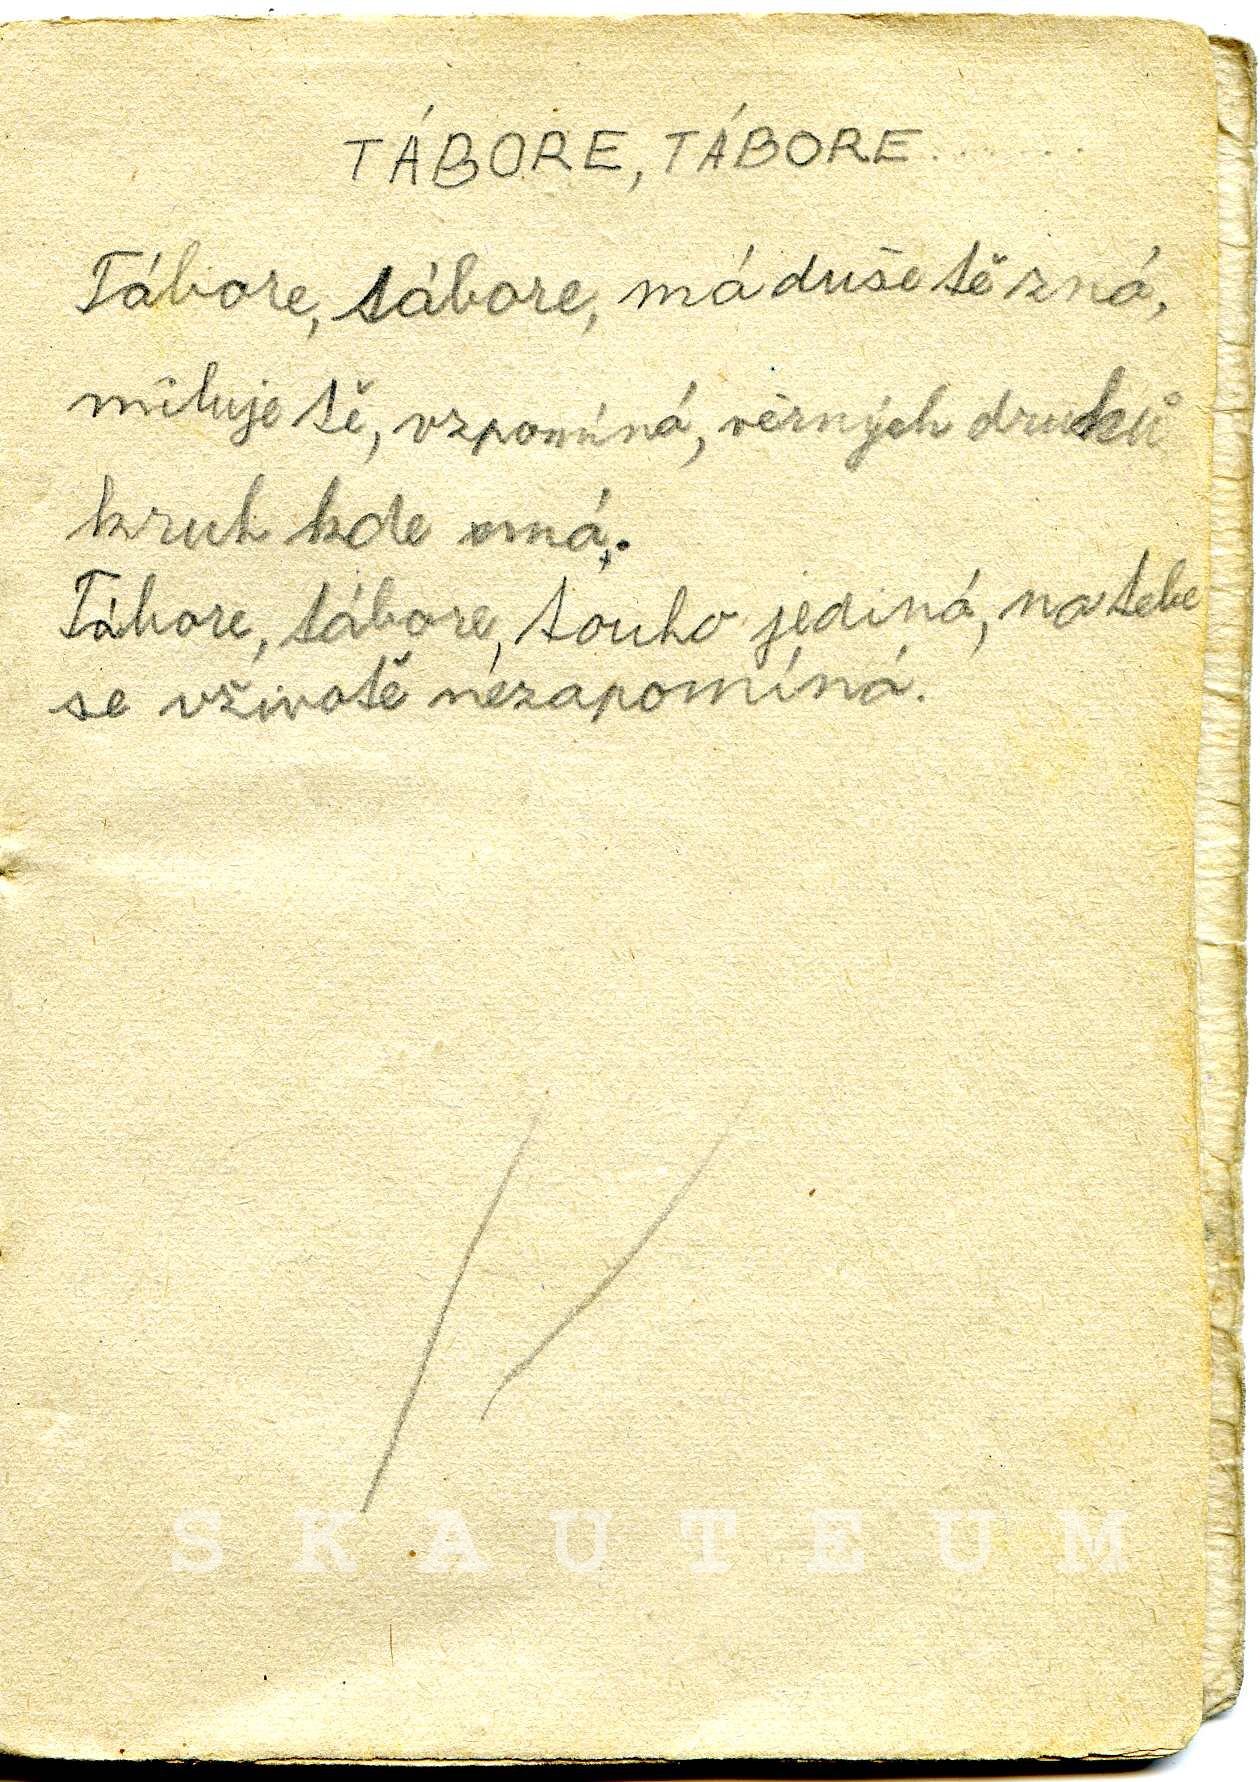 TÁBORE, TÁBORE..........
Tábore, tábore, má duše tě zná,
miluje tě, vzpomíná, věrných druhů
kruh kde má.
Tábore, tábore, touho jediná, na tebe
se v životě nezapomíná.
SKAUTEUM